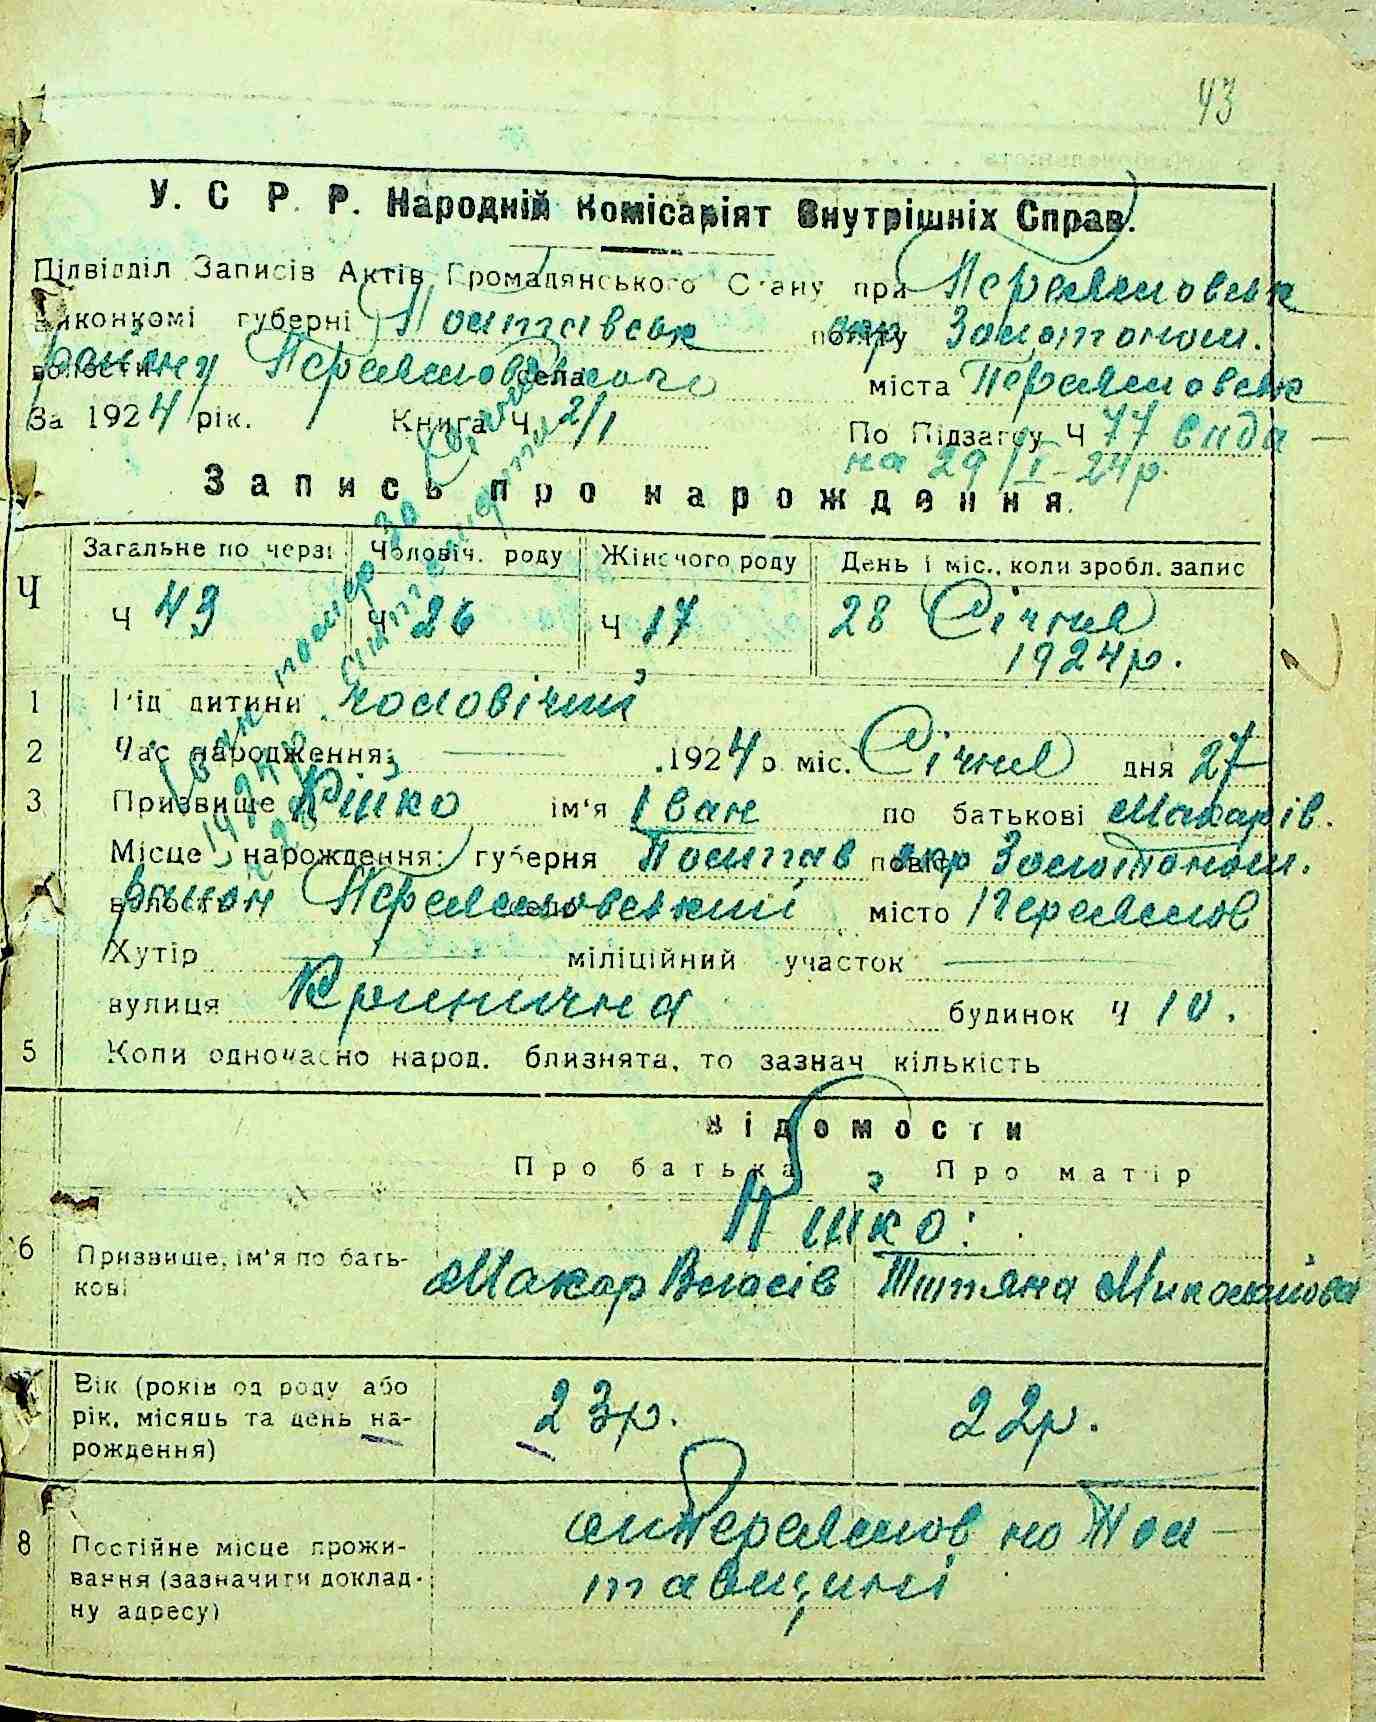 43
У. С. Р. Р. Народній Комісаріят Внутрішніх Справ.
Підвідділ Записів Актів Громадянського Стану при Переяславськ
виконкомі губерні Полтавськ повіту окр Золотонош.
волости району Переяславського села міста Переяславськ
За 1924 рік. Книга Ч. 2/1 По Підзагсу Ч 77 вида-
на 29/I-24р.
Запись про народження.
Ч Загальне по черзі Чоловіч. роду Жіночого роду День і міс., коли зробл. запис
Ч 43 Ч 26 Ч 17 28 Січня
1924р.
1 Рід дитини чоловічий
2 Час народження: 1924 р міс. Січня дня 27
3 Призвище ім'я Іван по батькові Макарів.
Місце нарождення: губерня Полтав повіт окр Золотонош.
волость район село Переяславський місто Переяслав
Хутір міліційний участок
вулиця Кринична будинок Ч 10.
5 Коли одночасно народ. близнята, то зазнач кількість
Відомости
Про батька Про матір
6 Призвище, ім'я по бать-
кові Макар Власів Титяна Миколайова
Вік (років од роду або
рік, місяць та день на- 23р. 22р.
рождення)
8 Постійне місце прожи- м Переяслав на Пол-
вання (зазначити доклад- тавщині
ну адресу)